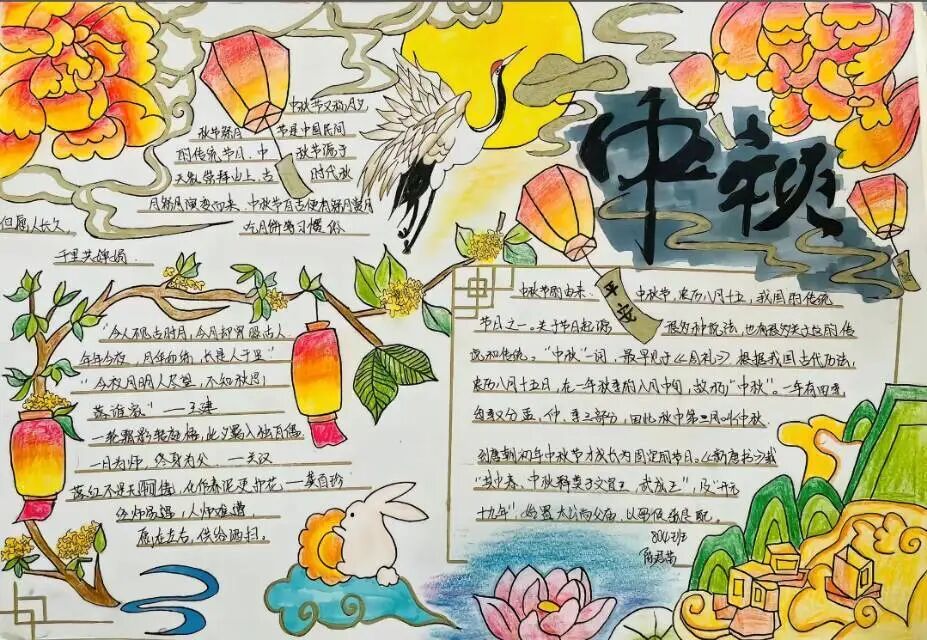 中秋
中秋节又称月夕
秋节
节是中国民间
的传统节日、中
秋节源于
天象崇拜
时代秋
夕祭月演变而来、中秋节自古便有祭月赏月
吃月饼等习惯俗
但愿人长久、
千里共婵娟
平安
"今人不见古时月,今月却曾照古人
今年今夜,
"今夜月明人尽望,不知秋思
落谁家" — 王建
一轮
一日为师,终身为父. — 关汉
落红不是无
化作春泥更护花 —
经师易遇,人师难遭
愿在左右,供给洒扫.
中秋节的由来.
中秋节,农历八月十五,我国的传统
节日之一、关于节日起源
很多种说法,也有很多关于这的传
说和传统。"中秋"一词,最早见于《周礼》、根据我国古代历法,
农历八月十五日,在一年秋季的八月中旬,故称"中秋"。一年有四季,
每季又分孟、仲、季三部分,因此秋中第二月叫仲秋
到唐朝初年中秋节才成为固定的节日。《新唐书》载
"其中春、中秋释奠于文宣王,武成王",及"开元
十九年",始置太公尚父庙,以留侯张良配.
804班